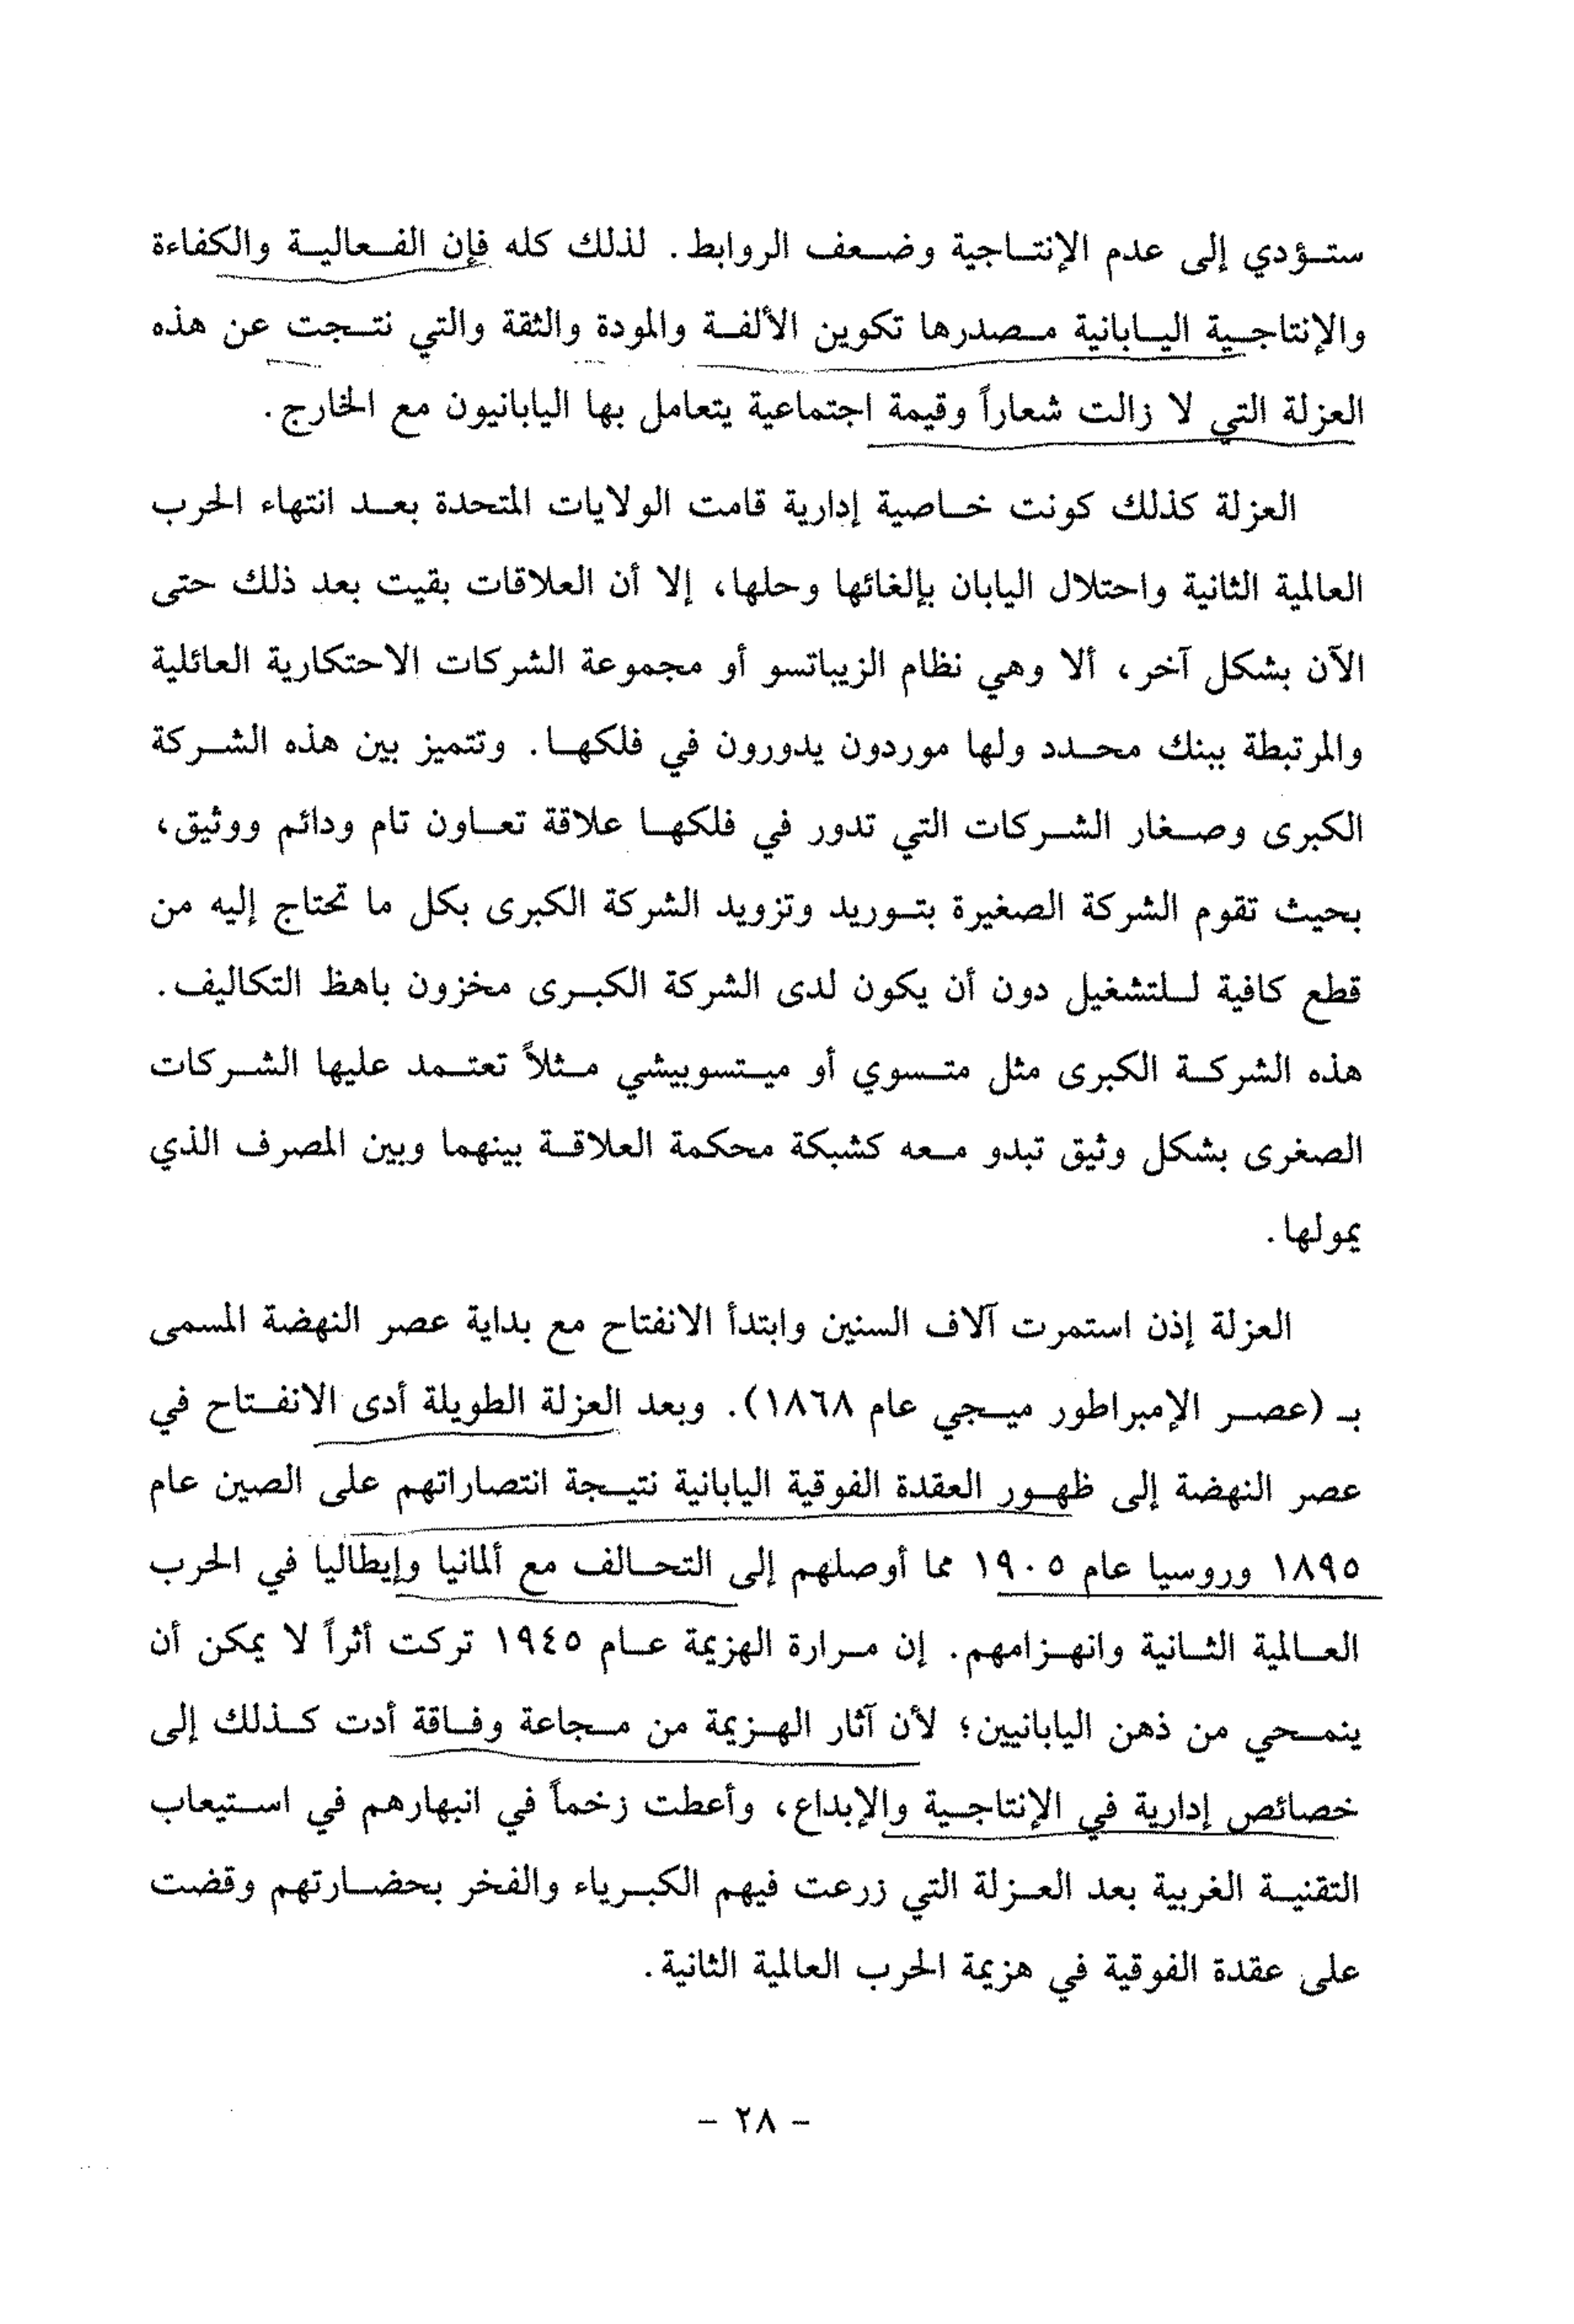 ستؤدي إلى عدم الإنتاجية وضعف الروابط. لذلك كله فإن الفعالية والكفاءة
والإنتاجية اليابانية مصدرها تكوين الألفة والمودة والثقة والتي نتجت عن هذه
العزلة التي لا زالت شعاراً وقيمة اجتماعية يتعامل بها اليابانيون مع الخارج.
العزلة كذلك كونت خاصية إدارية قامت الولايات المتحدة بعد انتهاء الحرب
العالمية الثانية واحتلال اليابان بإلغائها وحلها، إلا أن العلاقات بقيت بعد ذلك حتى
الآن بشكل آخر، ألا وهي نظام الزيباتسو أو مجموعة الشركات الاحتكارية العائلية
والمرتبطة ببنك محدد ولها موردون يدورون في فلكها. وتتميز بين هذه الشركة
الكبرى وصغار الشركات التي تدور في فلكها علاقة تعاون تام ودائم ووثيق،
بحيث تقوم الشركة الصغيرة بتوريد وتزويد الشركة الكبرى بكل ما تحتاج إليه من
قطع كافية للتشغيل دون أن يكون لدى الشركة الكبرى مخزون باهظ التكاليف.
هذه الشركة الكبرى مثل متسوي أو ميتسوبيشي مثلاً تعتمد عليها الشركات
الصغرى بشكل وثيق تبدو معه كشبكة محكمة العلاقة بينهما وبين المصرف الذي
يمولها.
العزلة إذن استمرت آلاف السنين وابتدأ الانفتاح مع بداية عصر النهضة المسمى
بـ (عصر الإمبراطور ميجي عام ١٨٦٨). وبعد العزلة الطويلة أدى الانفتاح في
عصر النهضة إلى ظهور العقدة الفوقية اليابانية نتيجة انتصاراتهم على الصين عام
١٨٩٥ وروسيا عام ١٩٠٥ مما أوصلهم إلى التحالف مع ألمانيا وإيطاليا في الحرب
العالمية الثانية وانهزامهم. إن مرارة الهزيمة عام ١٩٤٥ تركت أثراً لا يمكن أن
ينمحي من ذهن اليابانيين؛ لأن آثار الهزيمة من مجاعة وفاقة أدت كذلك إلى
خصائص إدارية في الإنتاجية والإبداع، وأعطت زخماً في انبهارهم في استيعاب
التقنية الغربية بعد العزلة التي زرعت فيهم الكبرياء والفخر بحضارتهم وقضت
على عقدة الفوقية في هزيمة الحرب العالمية الثانية.
- ٢٨ -